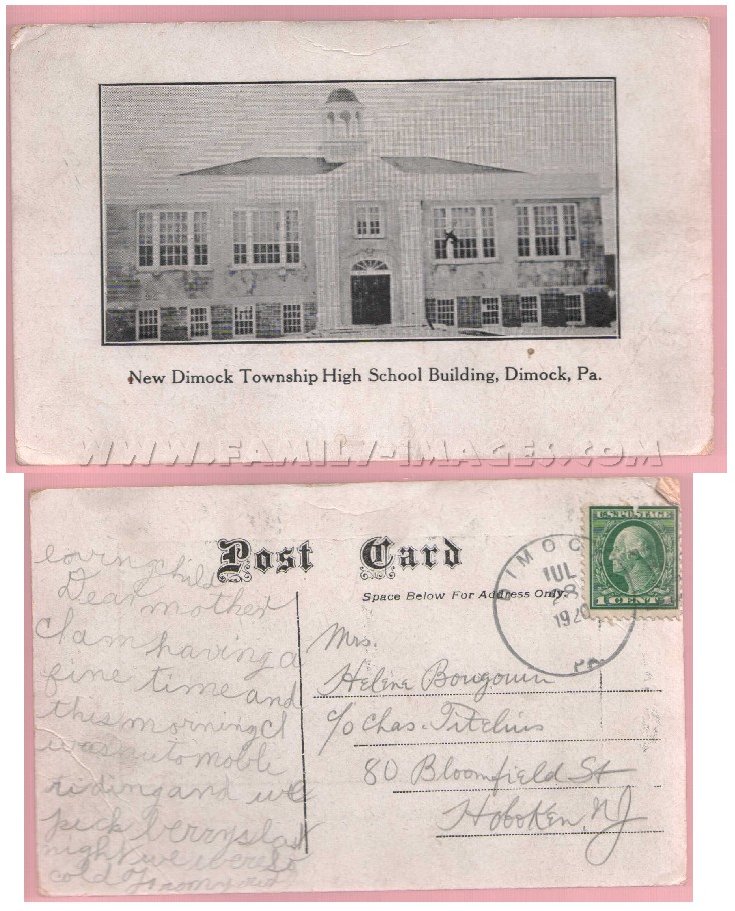 New Dimock Township High School Building, Dimock, Pa.
WWW.FAMILY-IMAGES.COM
Post Card
Space Below For Address Only.
U.S. POSTAGE
1 CENT 1
DIMOC
JUL
28
1920
PA
child
Dear mother
I am having a
fine time and
this morning I
was automoble
riding and we
pick berrys last
night we were so
cold
Mrs.
Helene Bougouin
c/o Chas. Titelius
80 Bloomfield St
Hoboken, NJ